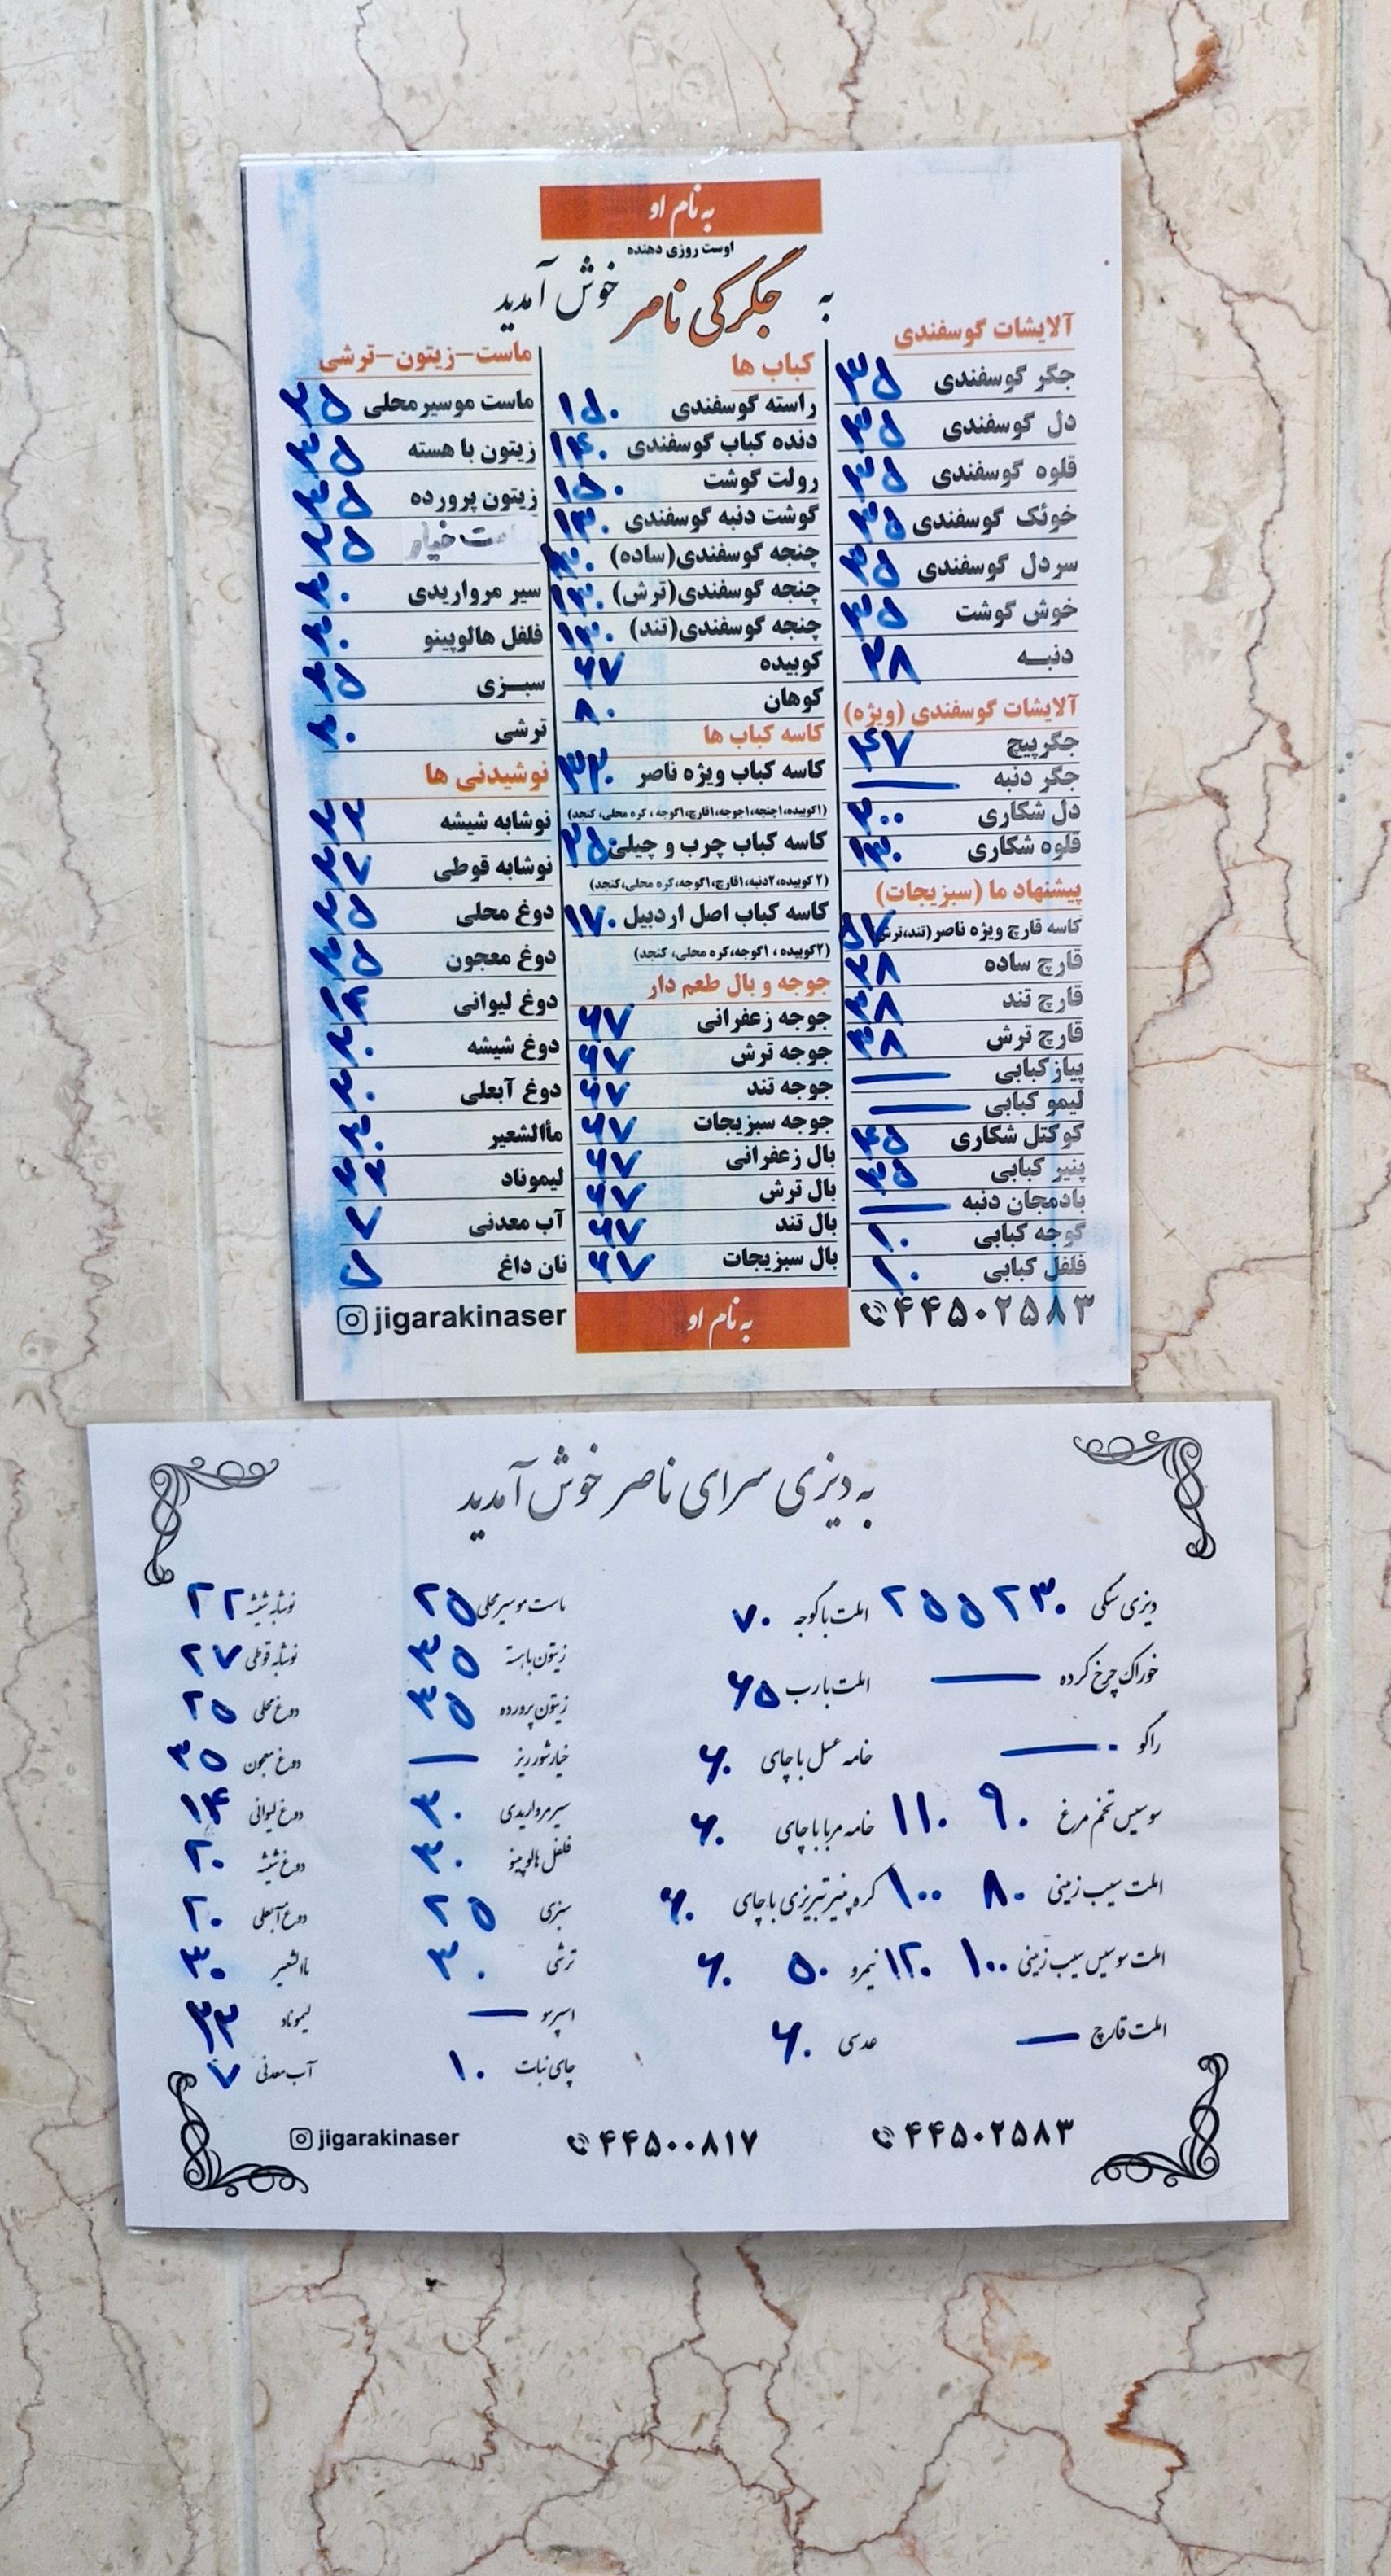 به نام او
اوست روزی دهنده
به جگرکی ناصر خوش آمدید
آلایشات گوسفندی
جگر گوسفندی ۳۵
دل گوسفندی ۳۵
قلوه گوسفندی ۳۵
خوئک گوسفندی ۳۵
سردل گوسفندی ۳۵
خوش گوشت ۳۵
دنبه ۲۸
آلایشات گوسفندی (ویژه)
جگرپیچ ۴۷
جگر دنبه —
دل شکاری ۳۰۰
قلوه شکاری ۱۳۰
پیشنهاد ما (سبزیجات)
کاسه قارچ ویژه ناصر(تند،ترش) ۵۷
قارچ ساده ۳۸
قارچ تند ۳۸
قارچ ترش ۳۸
پیاز کبابی —
لیمو کبابی —
کوکتل شکاری ۴۵
پنیر کبابی ۳۵
بادمجان دنبه —
گوجه کبابی ۱۰
فلفل کبابی ۱۰
۴۴۵۰۲۵۸۳
کباب ها
راسته گوسفندی ۱۵۰
دنده کباب گوسفندی ۱۴۰
رولت گوشت ۱۵۰
گوشت دنبه گوسفندی ۱۳۰
چنجه گوسفندی(ساده)
چنجه گوسفندی(ترش) ۱۳۰
چنجه گوسفندی(تند) ۱۳۰
کوبیده ۶۷
کوهان ۸۰
کاسه کباب ها
کاسه کباب ویژه ناصر
(۱کوبیده،۱چنجه،۱جوجه،۱قارچ،۱گوجه ، کره محلی، کنجد)
کاسه کباب چرب و چیلی ۲۵۰
(۲ کوبیده،۲دنبه،۱قارچ،۱گوجه،کره محلی،کنجد)
کاسه کباب اصل اردبیل ۱۷۰
(۲کوبیده ، ۱گوجه،کره محلی، کنجد)
جوجه و بال طعم دار
جوجه زعفرانی ۶۷
جوجه ترش ۶۷
جوجه تند ۶۷
جوجه سبزیجات ۶۷
بال زعفرانی ۶۷
بال ترش ۶۷
بال تند ۶۷
بال سبزیجات ۶۷
به نام او
ماست-زیتون-ترشی
ماست موسیر محلی
زیتون با هسته ۳۵
زیتون پرورده ۳۵
ست خیار
سیر مرواریدی ۳۰
فلفل هالوپینو ۳۰
سبـزی ۲۵
ترشی ۳۰
نوشیدنی ها
نوشابه شیشه ۲۲
نوشابه قوطی ۲۷
دوغ محلی ۲۵
دوغ معجون ۳۵
دوغ لیوانی ۱۴
دوغ شیشه ۲۰
دوغ آبعلی ۲۰
مأالشعیر ۳۰
لیموناد ۳۳
آب معدنی ۷
نان داغ
jigarakinaser
به دیزی سرای ناصر خوش آمدید
دیزی سنگی ۲۳۰ ۲۵۵
خوراک چرخ کرده —
راگو —
سوسیس تخم مرغ ۹۰ ۱۱۰
املت سیب زمینی ۸۰ ۱۰۰
املت سوسیس سیب زمینی ۱۰۰ ۱۲۰
املت قارچ —
املت با گوجه ۷۰
املت با رب ۶۵
خامه عسل با چای ۶۰
خامه مربا با چای ۶۰
کره پنیر تبریزی با چای ۶۰
نیمرو ۵۰ ۶۰
عدسی ۶۰
ماست موسیر محلی ۲۵
زیتون با هسته ۳۵
زیتون پرورده ۳۵
خیارشور ریز —
سیر مرواریدی ۳۰
فلفل هالوپینو ۳۰
سبزی ۲۵
ترشی ۳۰
اسپرسو —
چای نبات ۱۰
نوشابه شیشه ۲۲
نوشابه قوطی ۲۷
دوغ محلی ۲۵
دوغ معجون ۳۵
دوغ لیوانی ۱۴
دوغ شیشه ۲۰
دوغ آبعلی ۲۰
ماالشعیر ۳۰
لیموناد ۳۳
آب معدنی ۷
۴۴۵۰۲۵۸۳
۴۴۵۰۰۸۱۷
jigarakinaser